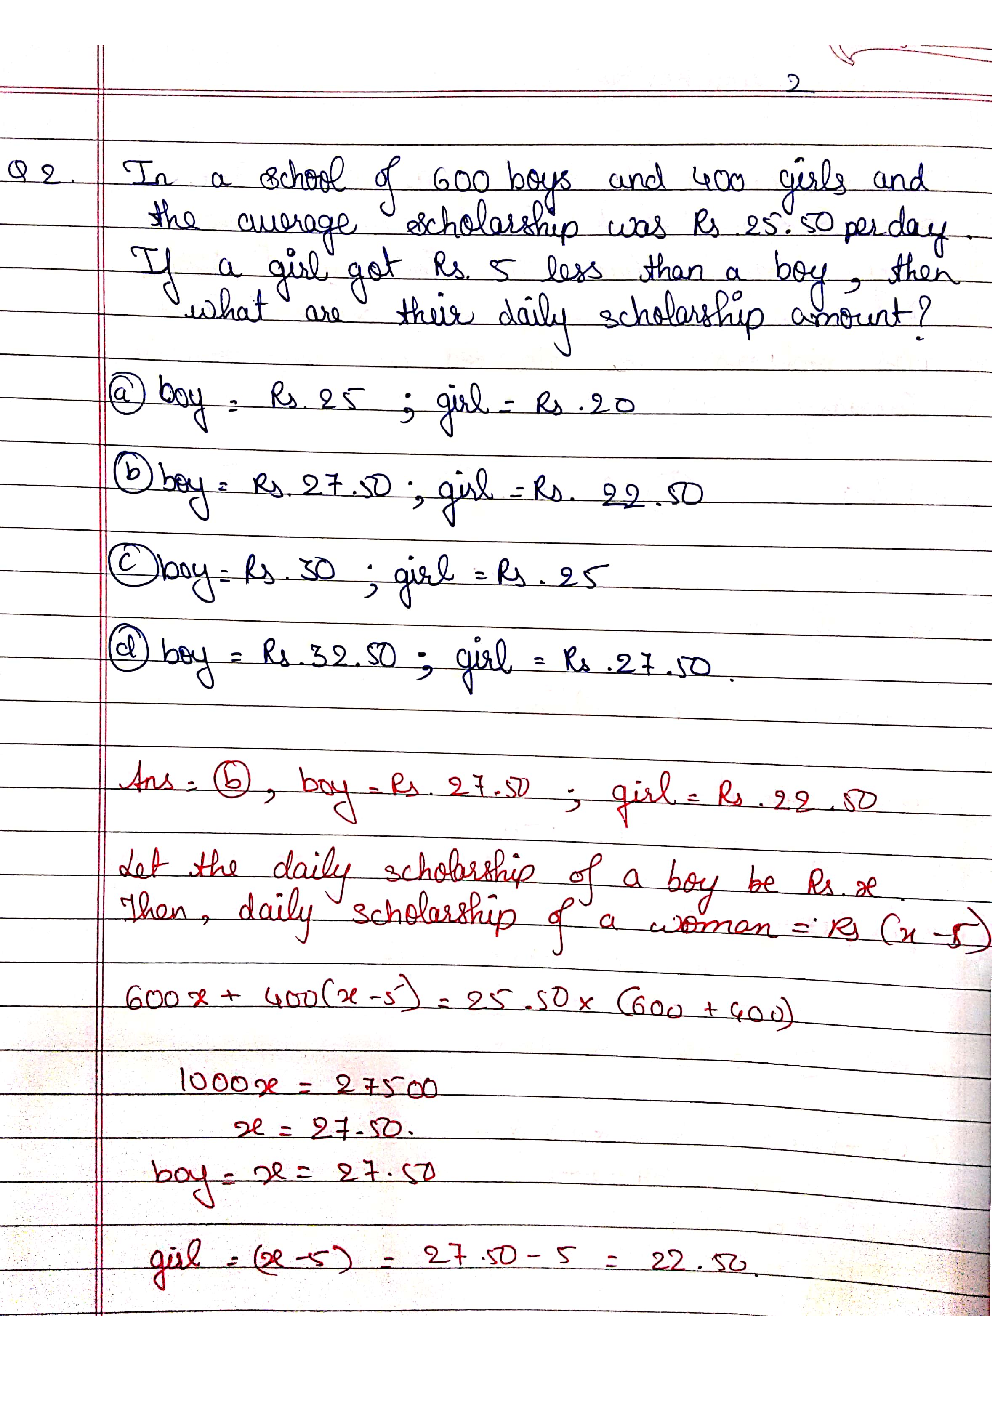 2
Q 2. In a school of 600 boys and 400 girls and
the average scholarship was Rs 25.50 per day.
If a girl got Rs. 5 less than a boy, then
what are their daily scholarship amount?
(a) boy = Rs. 25 ; girl = Rs. 20
(b) boy = Rs. 27.50 ; girl = Rs. 22.50
(c) boy = Rs. 30 ; girl = Rs. 25
(d) boy = Rs. 32.50 ; girl = Rs. 27.50.
Ans = (b), boy = Rs. 27.50 ; girl = Rs. 22.50
Let the daily scholarship of a boy be Rs. x.
Then, daily scholarship of a woman = Rs (x - 5)
600x + 400(x - 5) = 25.50 x (600 + 400)
1000x = 27500
x = 27.50.
boy = x = 27.50
girl = (x - 5) = 27.50 - 5 = 22.50.